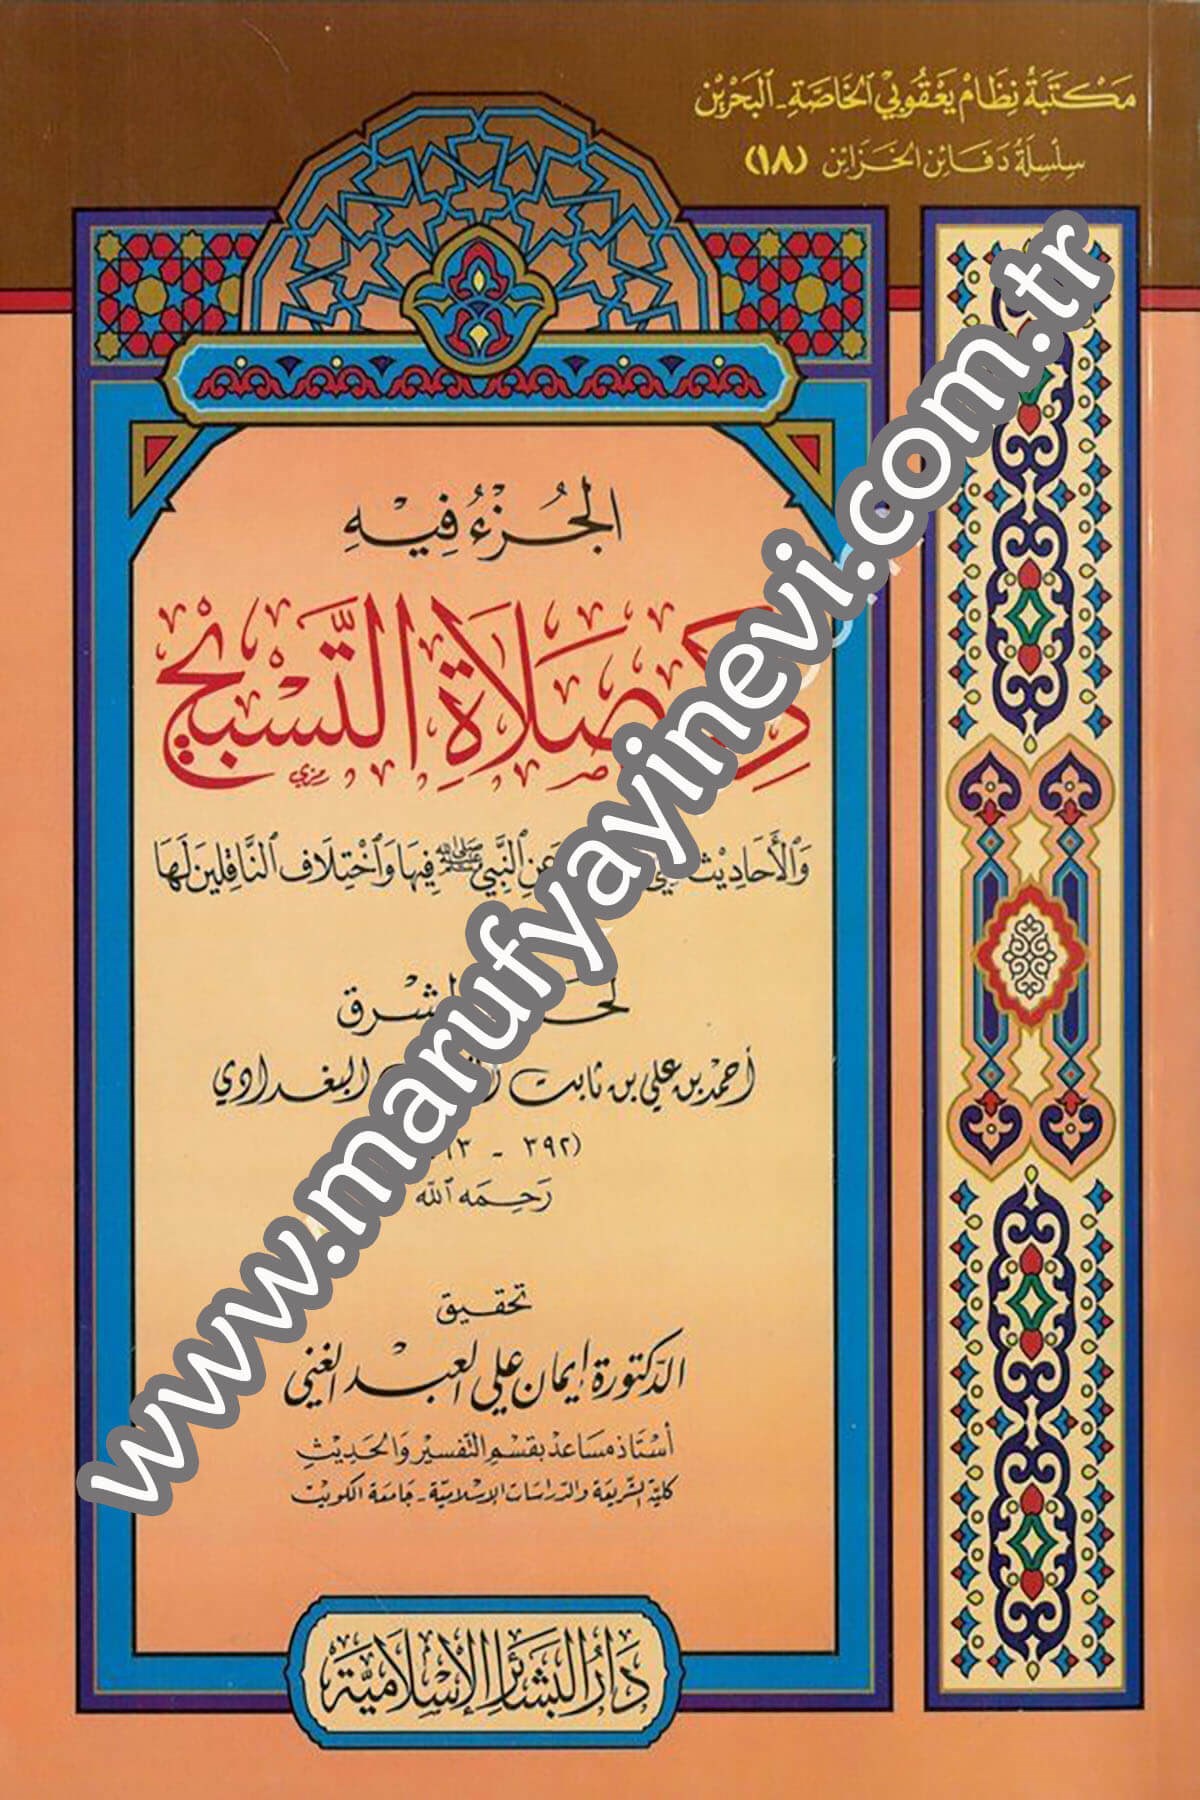 مَكْتَبَةُ نِظَامْ يَعْقُوبِي الخَاصَّةِ ـ البَحْرَيْن
سِلْسِلَةُ دَفَائِنِ الخَزَائِنِ (١٨)
الجُزْءُ فِيْهِ
صَلَاةِ التَّسْبِيْحِ
وَالأَحَادِيْثِ عَنِ النَّبِيِّ ﷺ فِيهَا وَاخْتِلَافِ النَّاقِلِينَ لَهَا
أحمد بن علي بن ثابت البغدادي
(٣٩٢ -
رَحِمَهُ اللّه
تحقيق
الدكتورة إيمان علي العبد الغني
أستاذ مساعد بقسم التفسير والحديث
كلية الشريعة والدراسات الإسلامية - جامعة الكويت
دَارُ البَشَائِرِ الإِسْلَامِيَّة
www.marufyayinevi.com.tr